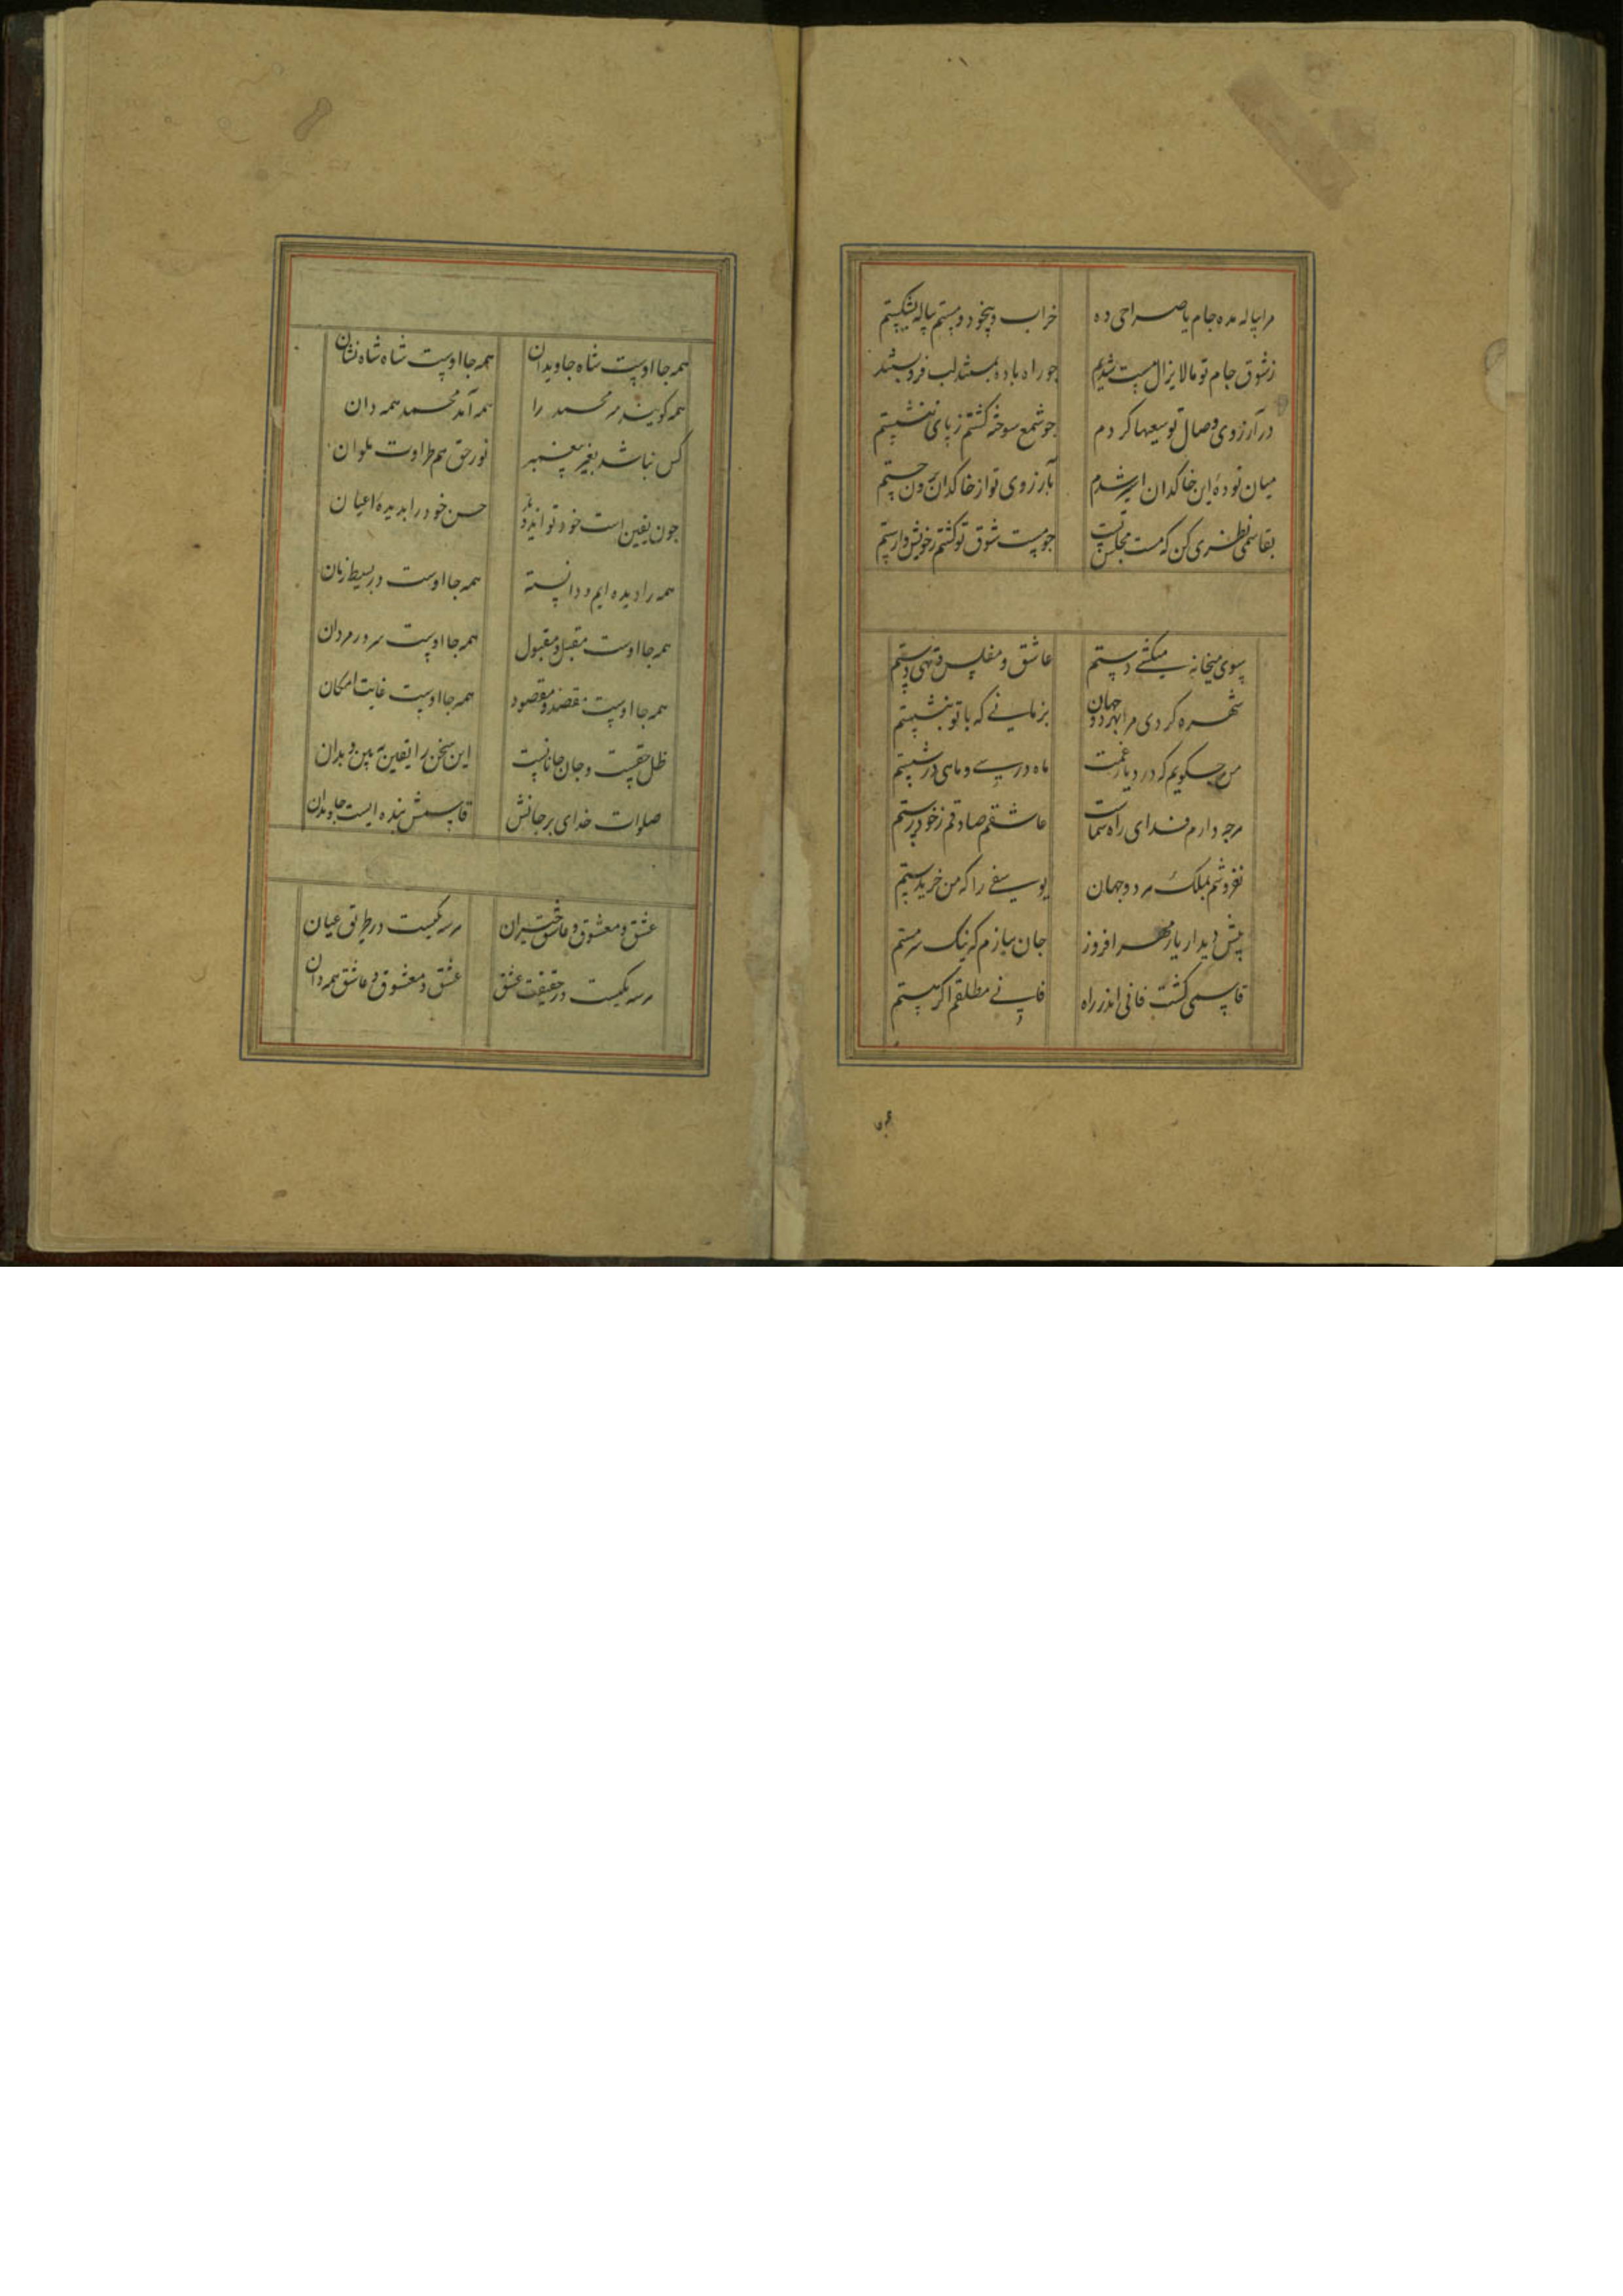 مرا پیاله مده جام یا صراحی ده خراب و بیخود و مستم پیاله بشکستم
ز شوق جام تو ما لا یزال مست شدیم چو راه باده ببستند لب فرو بستند
در آرزوی وصال تو سعیها کردم چو شمع سوخته گشتم ز پای ننشستم
میان تودهٔ این خاکدان اسیر شدم بآرزوی تو از خاکدان برون جستم
بقاسمی نظری کن که مست مجلس تست چو مست شوق تو گشتم ز خویش وارستم
سوی میخانه میکشی دستم عاشق و مفلس و تهی دستم
شهره کردی مرا بهر دو جهان بزمانی که با تو بنشستم
من چکویم که در دیار غمت ماه در سی و ماهی در شستم
هرچه دارم فدای راه شماست عاشقم صادقم ز خود رستم
نفروشم بملک هر دو جهان یوسفی را که من خریدستم
پیش دیدار یار مهر افروز جان ببازم که نیک سرمستم
قاسمی گشت فانی اندر راه فانی مطلقم اگر هستم
همه جا اوست شاه جاویدان همه جا اوست شاه شاه نشان
همه گویند مر محمد را همه آمد محمد همه دان
کس نباشد بغیر پیغمبر نور حق هم طراوت ملوان
چون یقین است خود تواند دید حسن خود را بدیدهٔ اعیان
همه را دیده‌ایم و دانسته همه جا اوست در بسیط زمان
همه جا اوست مقبل و مقبول همه جا اوست سرور مردان
همه جا اوست مقصد و مقصود همه جا اوست غایت امکان
ظل حقست و جان جانانست این سخن را یقین ببین و بدان
صلوات خدای بر جانش قاسمش بنده ایست جاویدان
عشق و معشوق و عاشق حیران هر سه یکیست در طریق عیان
هر سه یکیست در حقیقت عشق عشق و معشوق و عاشق همه دان